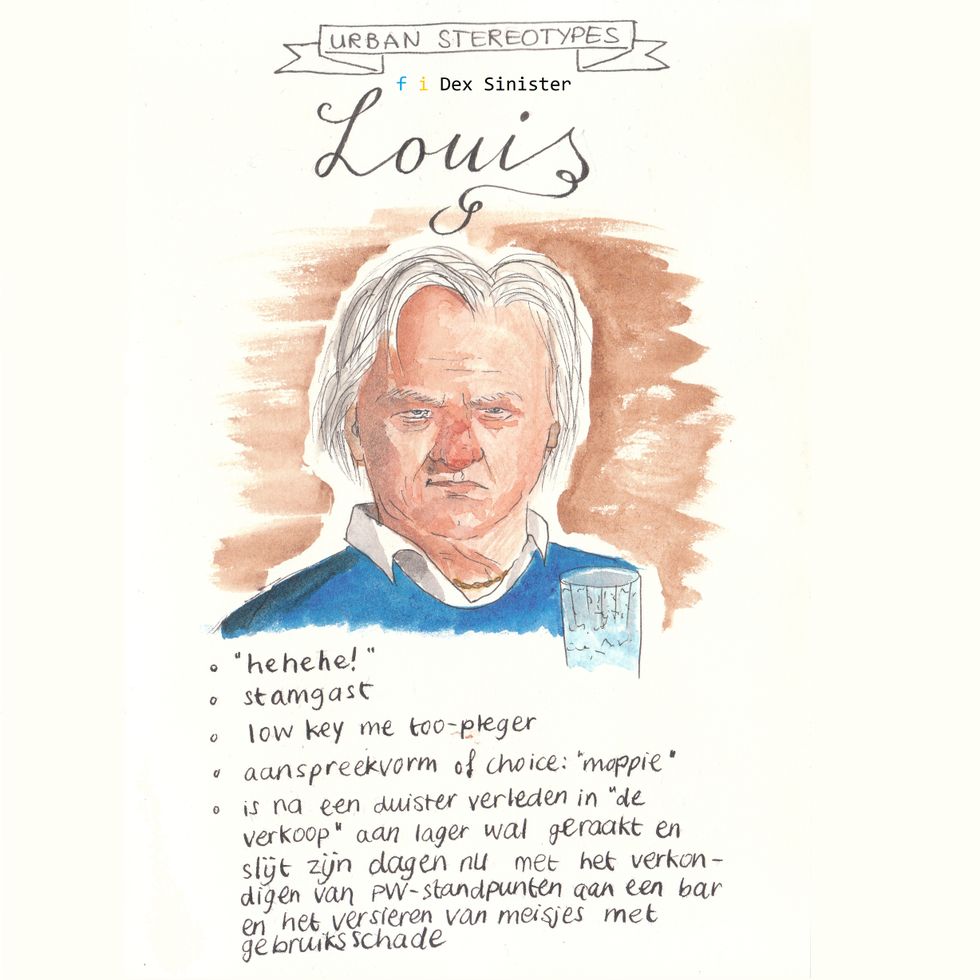 URBAN STEREOTYPES
f i Dex Sinister
Louis
"hehehe!"
stamgast
low key me too-pleger
aanspreekvorm of choice: "moppie"
is na een duister verleden in "de
verkoop" aan lager wal geraakt en
slijt zijn dagen nu met het verkon-
digen van PW-standpunten aan een bar
en het versieren van meisjes met
gebruiksschade